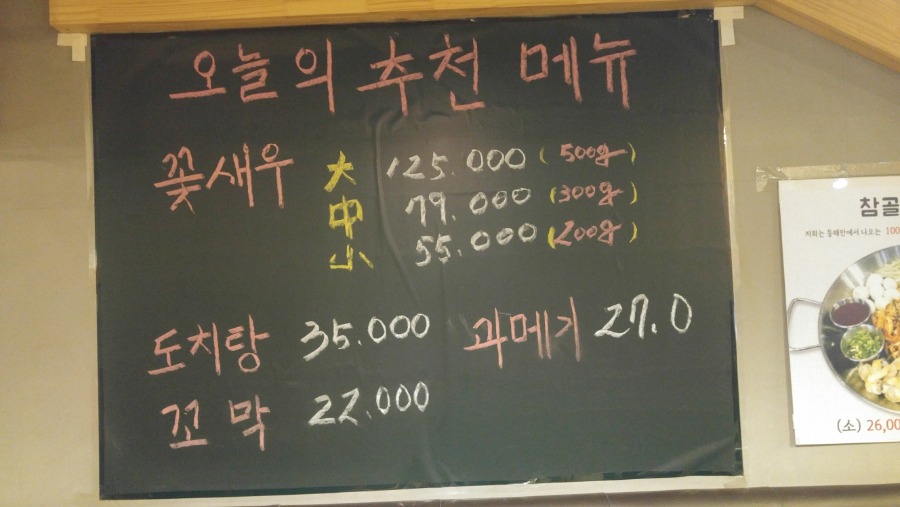 오늘의 추천 메뉴
꽃새우 大 125.000 (500g)
中 79.000 (300g)
小 55.000 (200g)
도치탕 35.000 과메기 27.0
꼬막 22.000
참골
저희는 통째만에서 나오는 100
(소) 26,00